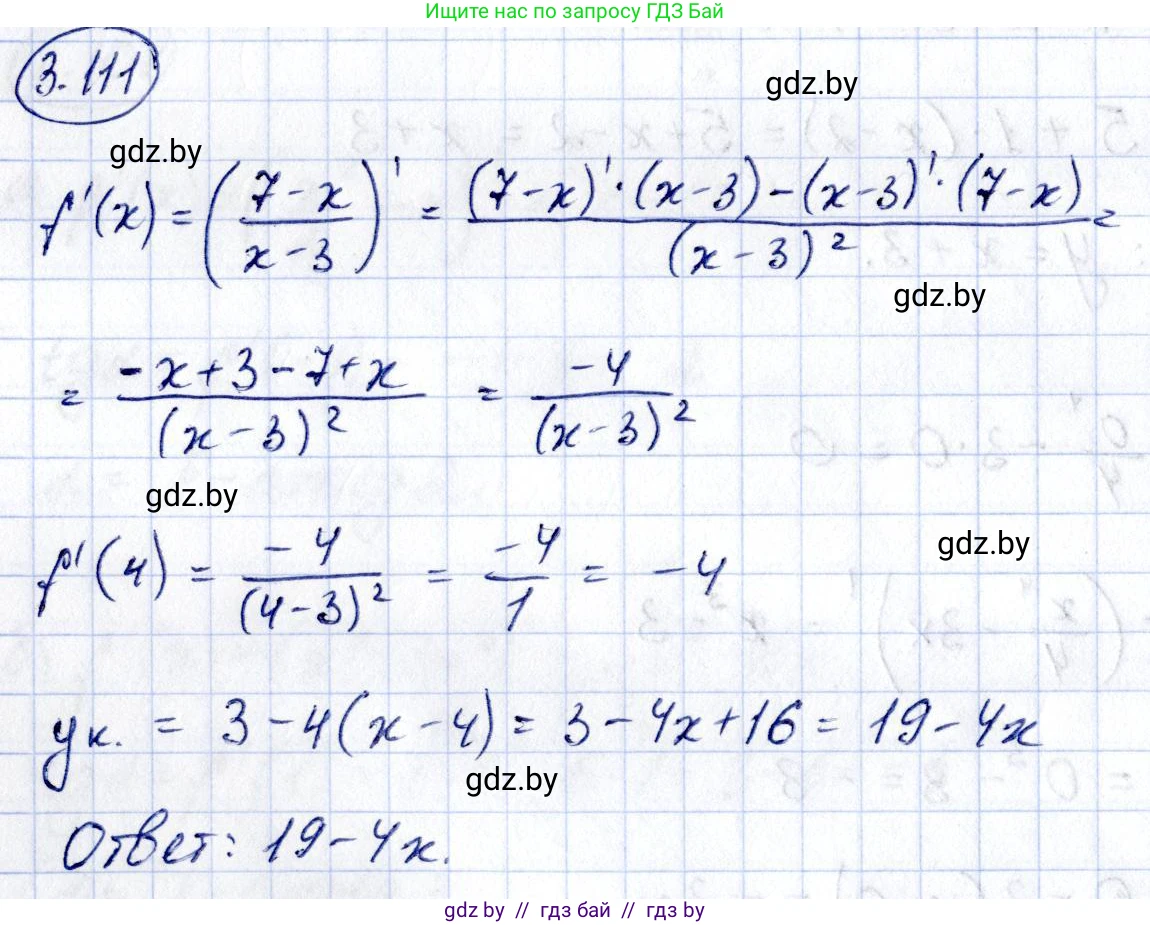 Ищите нас по запросу ГДЗ Бай
3.111
gdz.by
gdz.by
f'(x) = ((7-x)/(x-3))' = ((7-x)'·(x-3)-(x-3)'·(7-x))/(x-3)² =
gdz.by
= (-x+3-7+x)/(x-3)² = -4/(x-3)²
gdz.by
gdz.by
f'(4) = -4/(4-3)² = -4/1 = -4
yк. = 3-4(x-4) = 3-4x+16 = 19-4x
gdz.by
Ответ: 19-4x.
gdz.by // гдз бай // гдз by